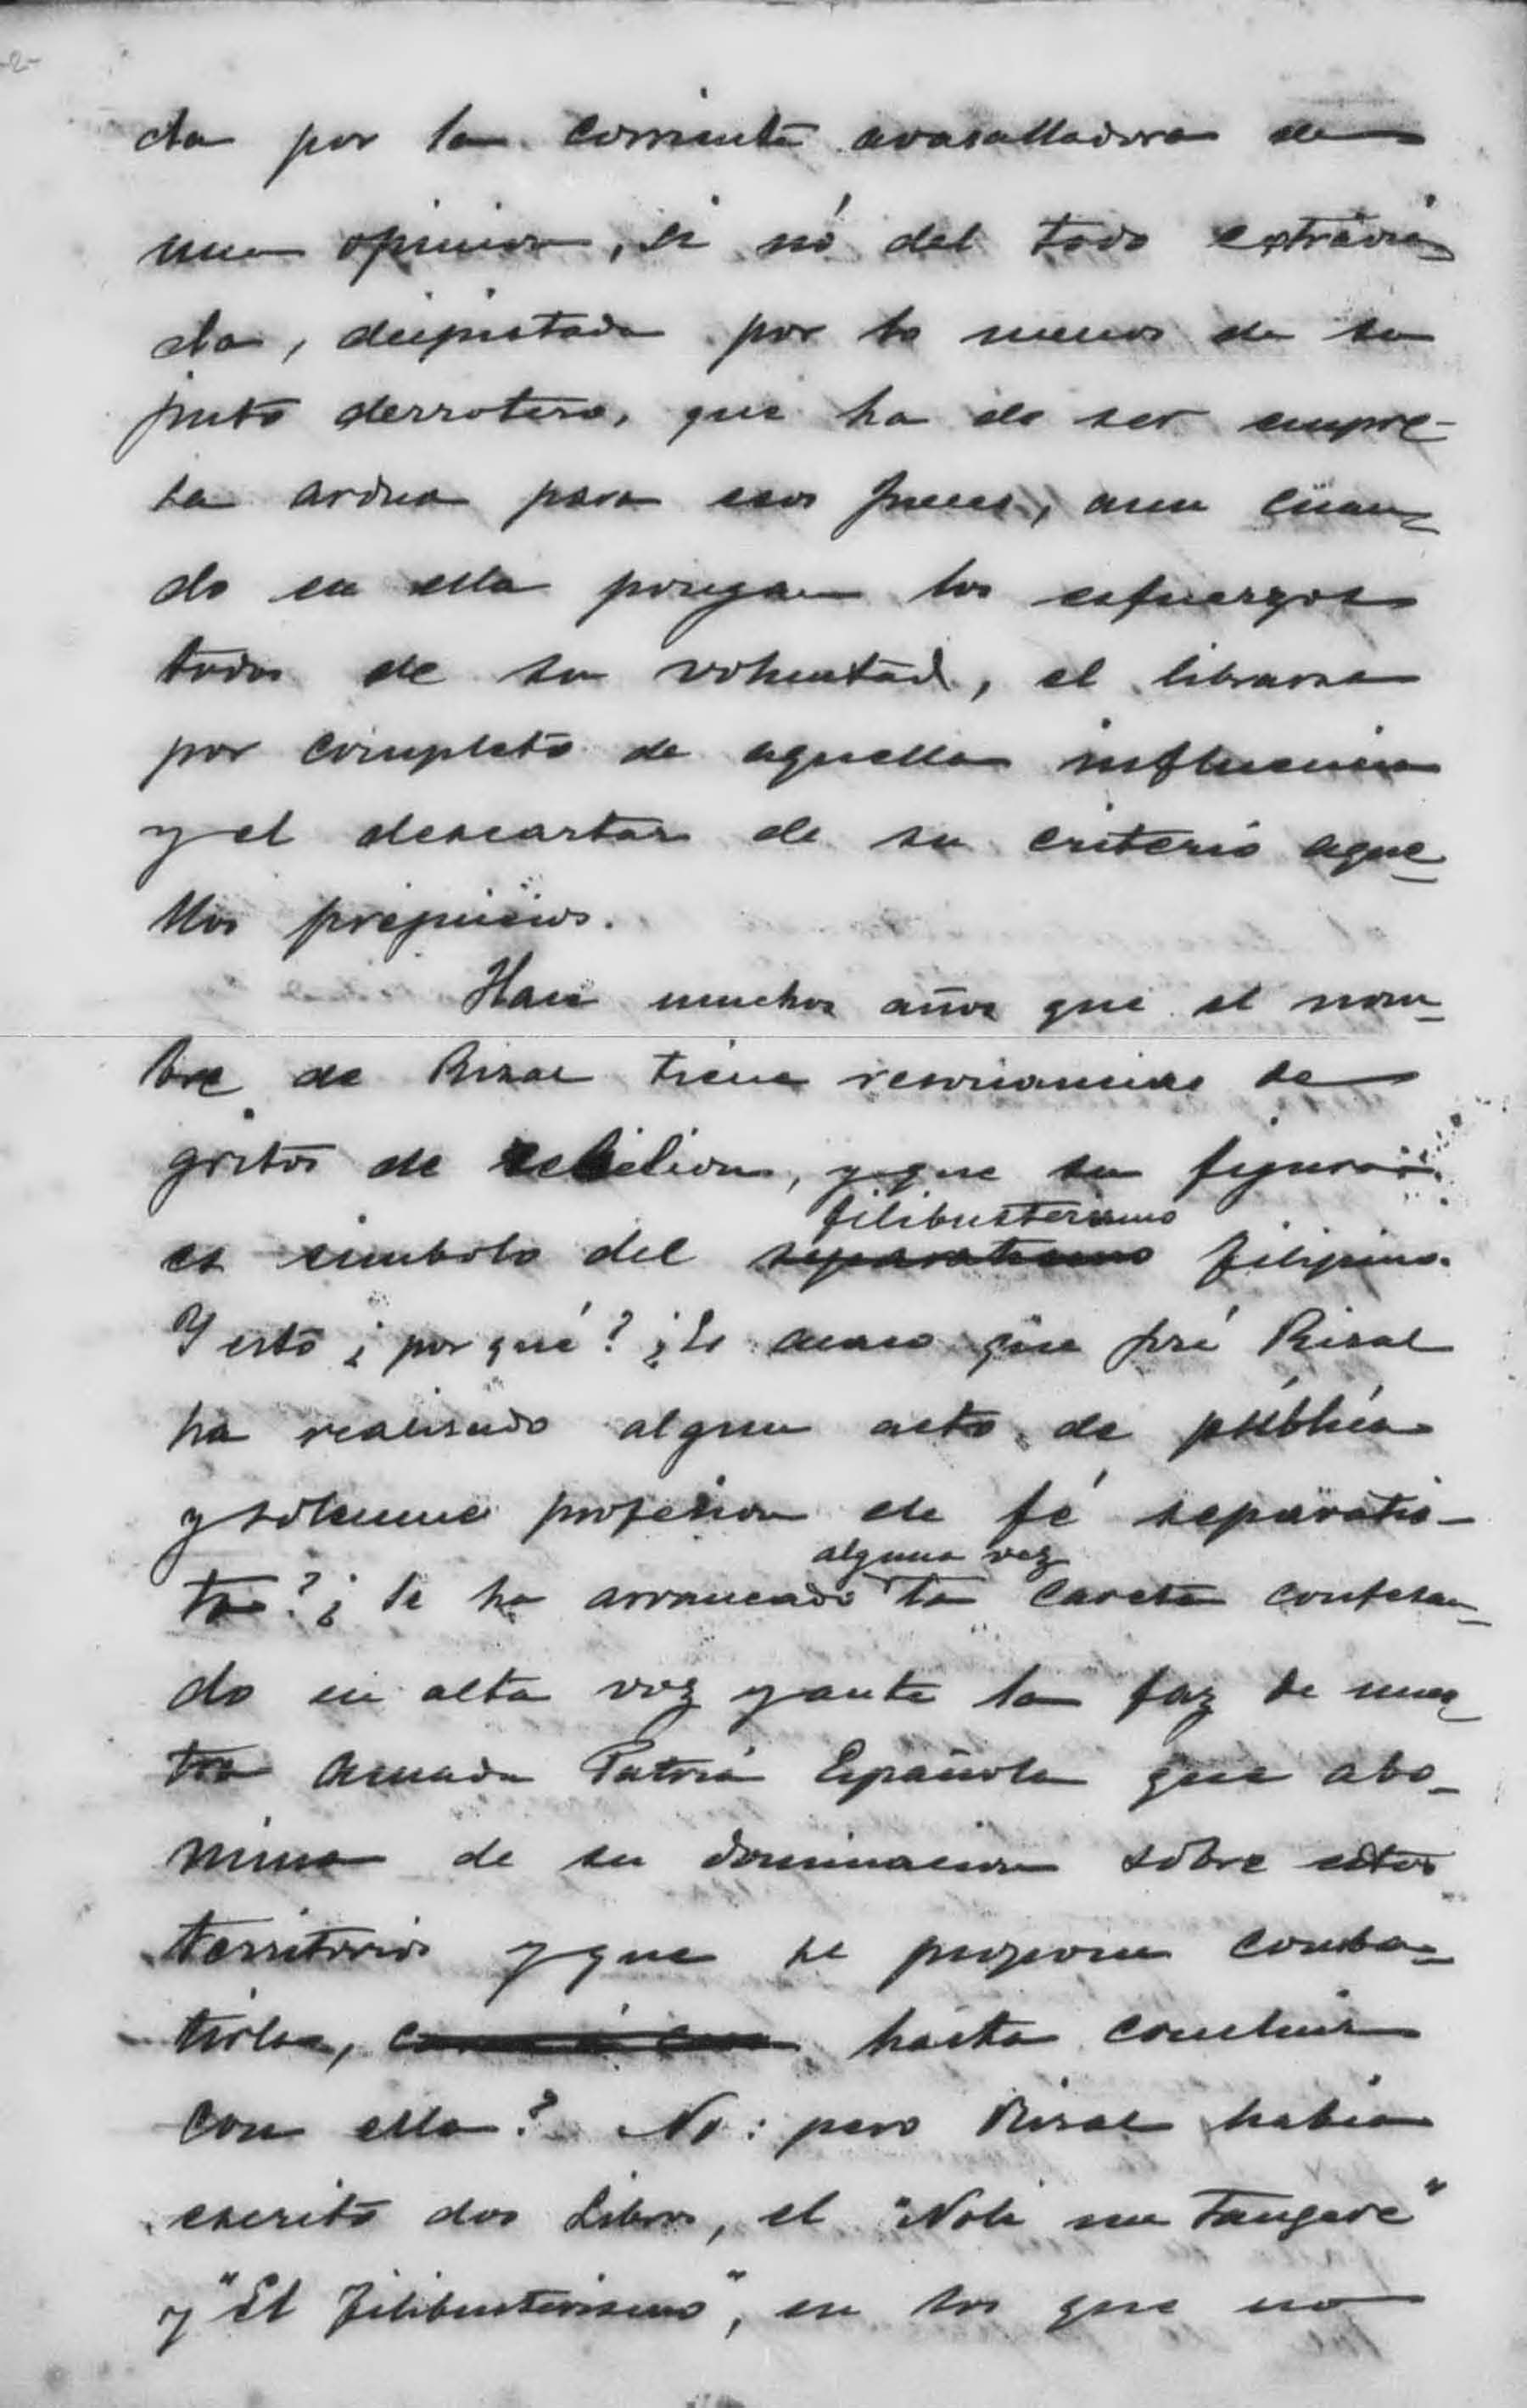 -2-
da por la corriente avasalladora de
una opinion, si nó del todo extravia
da, despistada por lo menos de su
justo derrotero, que ha de ser empre-
sa ardua para esos Jueces, aun cuan-
do en ella pongan los esfuerzos
todos de su voluntad, el librarse
por completo de aquella influencia
y el descartar de su criterio aque-
llos prejuicios.
Hace muchos años que el nom-
bre de Rizal tiene resonancias de
gritos de rebelion, y que su figura
es simbolo del filibusterismo separatismo filipino.
Y esto ¿por qué? ¿Es acaso que José Rizal
ha realizado algun acto de pública
y solemne profesion de fé separatis-
ta? ¿Se ha arrancado alguna vez la careta confesan-
do en alta voz y ante la faz de nues-
tra amada Patria Española que abo-
mina de su dominacion sobre estos
territorios y que se propone comba-
tirla, hasta concluir
con ella? No: pero Rizal habia
escrito dos Libros, el "Noli me Tangere"
y "El Filibusterismo", en los que no